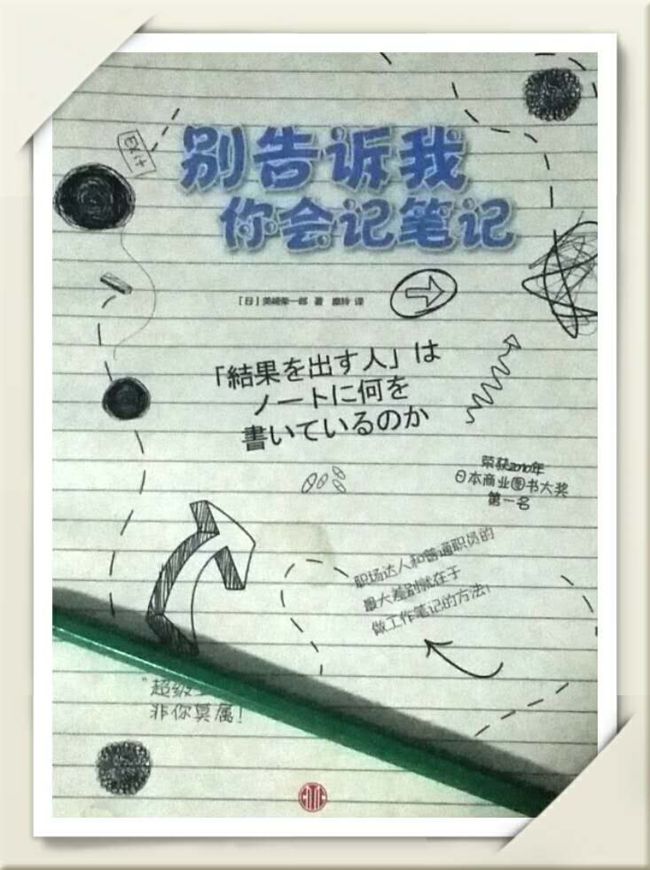 Exit
别告诉我
你会记笔记
[日]美崎荣一郎 著 糜玲 译
「結果を出す人」は
ノートに何を
書いているのか
荣获2010年
日本商业图书大奖
第一名
职场达人和普通职员的
最大差别就在于
做工作笔记的方法!
"超级
非你莫属!